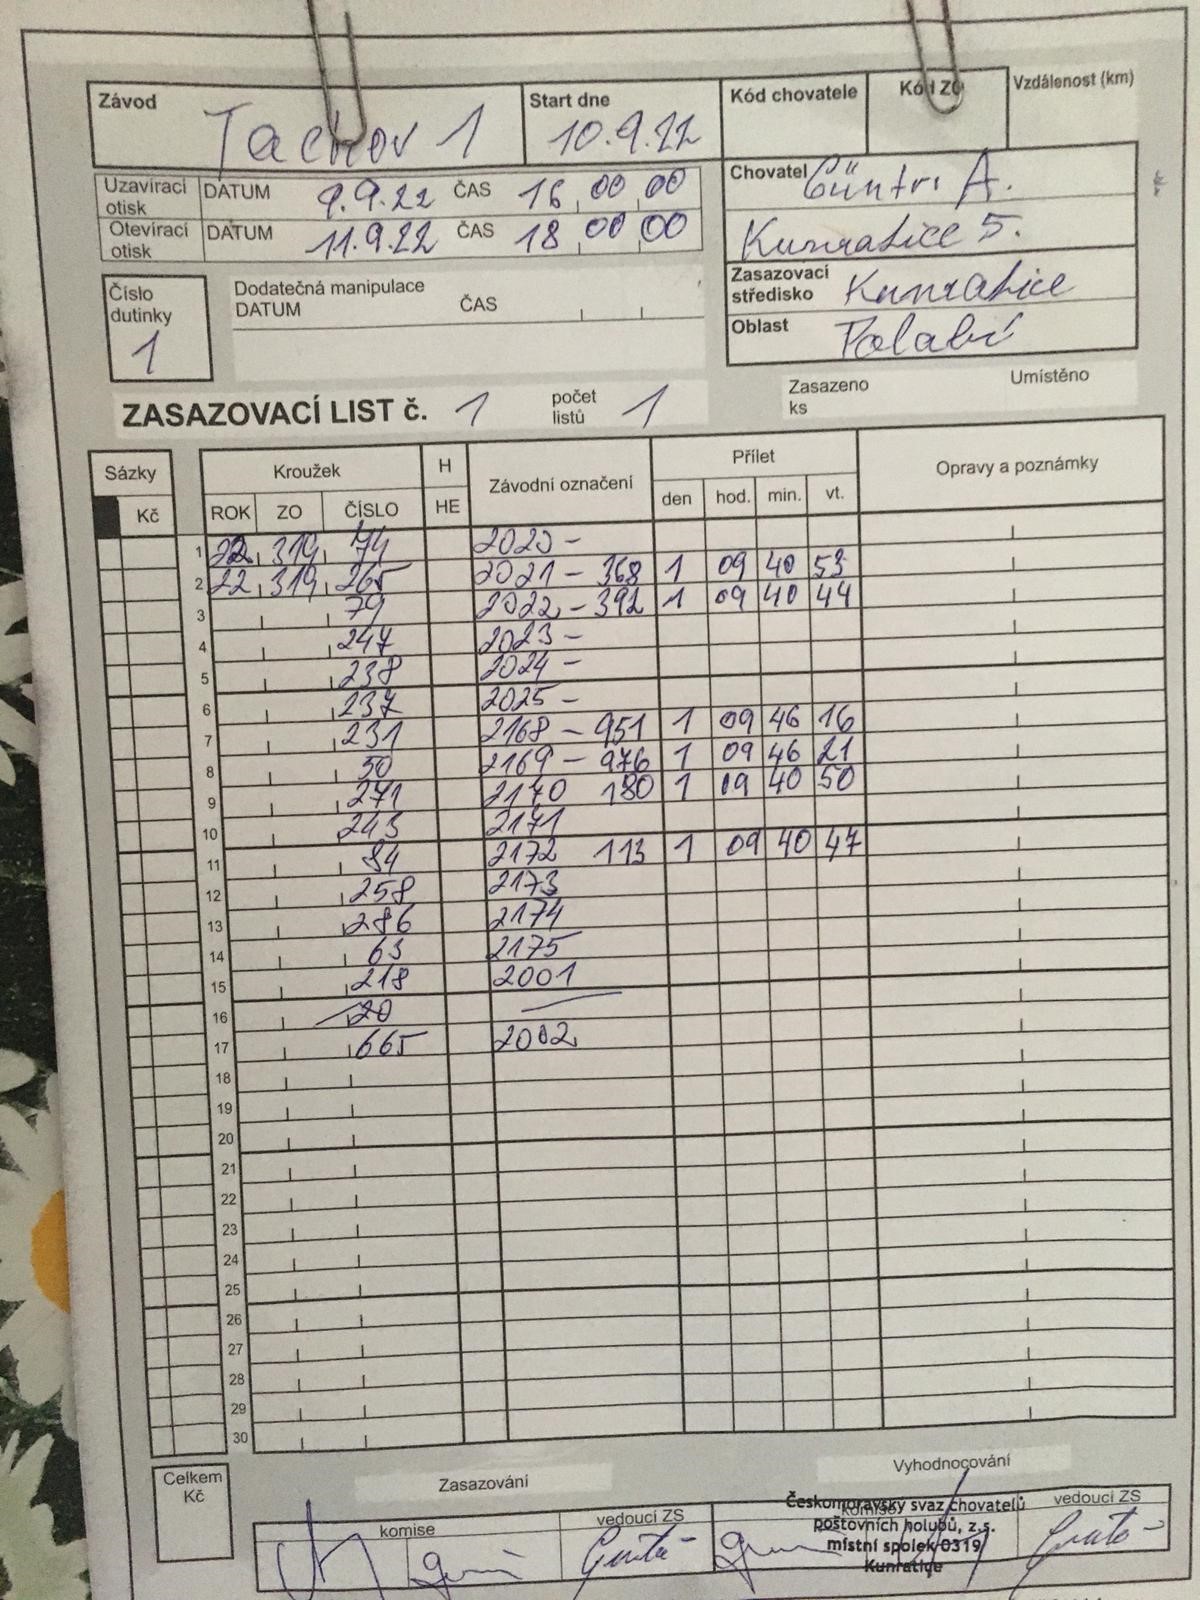 Závod Start dne Kód chovatele Kód ZO Vzdálenost (km)
Tachov 1 10.9.22
Uzavírací otisk DATUM 9.9.22 ČAS 16 00 00
Otevírací otisk DATUM 11.9.22 ČAS 18 00 00
Chovatel Güntr. A.
Kunratice 5.
Zasazovací středisko Kunratice
Oblast Polabí
Číslo dutinky 1
Dodatečná manipulace
DATUM ČAS
ZASAZOVACÍ LIST č. 1 počet listů 1
Zasazeno ks Umístěno
Sázky Kroužek H Závodní označení Přílet Opravy a poznámky
Kč ROK ZO ČÍSLO HE den hod. min. vt.
1 22 319 74 2020 -
2 22 319 265 2021 - 368 1 09 40 53
3 79 2022 - 392 1 09 40 44
4 247 2023 -
5 238 2024 -
6 237 2025 -
7 231 2168 - 951 1 09 46 16
8 50 2169 - 976 1 09 46 21
9 271 2170 180 1 09 40 50
10 243 2171
11 84 2172 113 1 09 40 47
12 258 2173
13 286 2174
14 63 2175
15 218 2001
16 20
17 665 2002
18
19
20
21
22
23
24
25
26
27
28
29
30
Celkem Kč
Zasazování Vyhodnocování
komise vedoucí ZS komise vedoucí ZS
Českomoravský svaz chovatelů
poštovních holubů, z.s.
místní spolek 0319
Kunratice